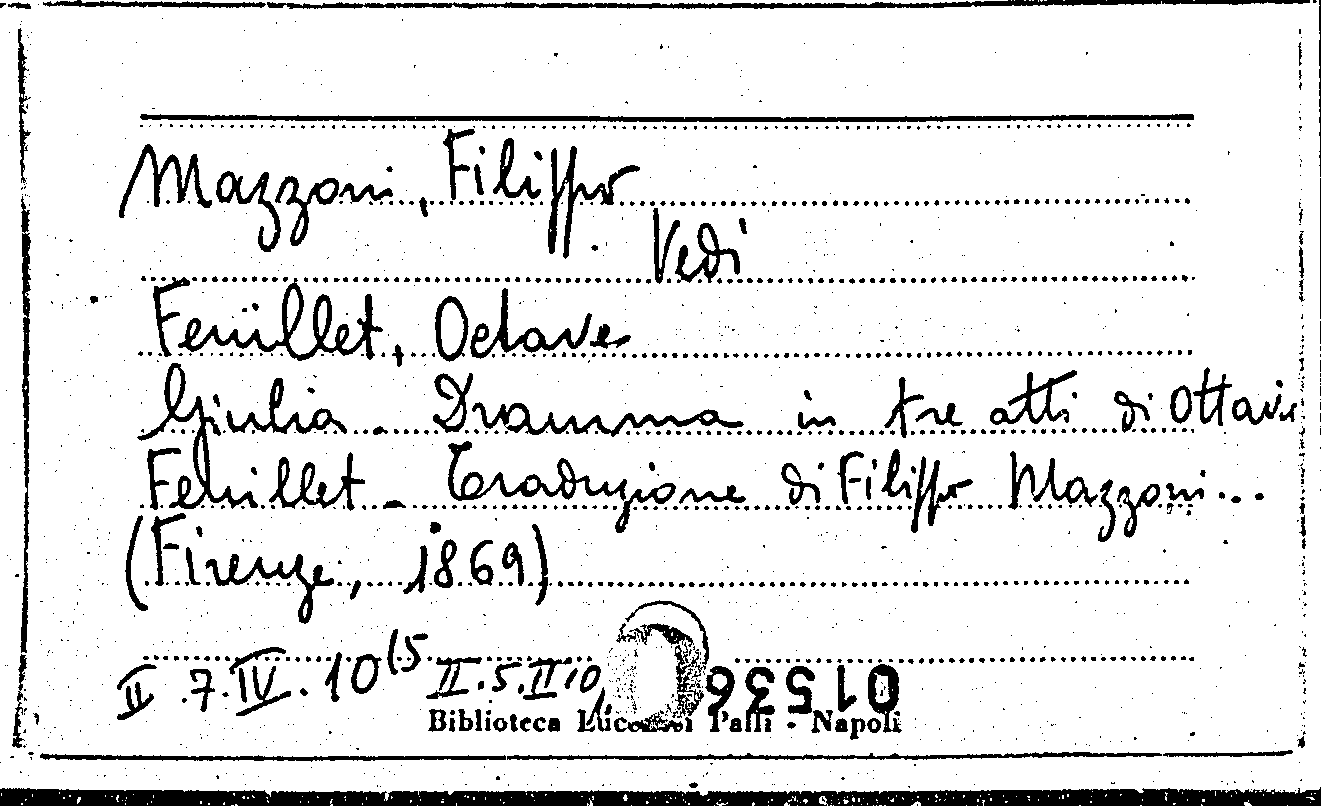 Mazzoni, Filippo
Vedi
Feuillet, Octave
Giulia - Dramma in tre atti di Ottavio
Feuillet - Traduzione di Filippo Mazzoni...
(Firenze, 1869)
II.7.IV.10(5 II.5.II10
01536
Biblioteca Lucchesi Palli - Napoli